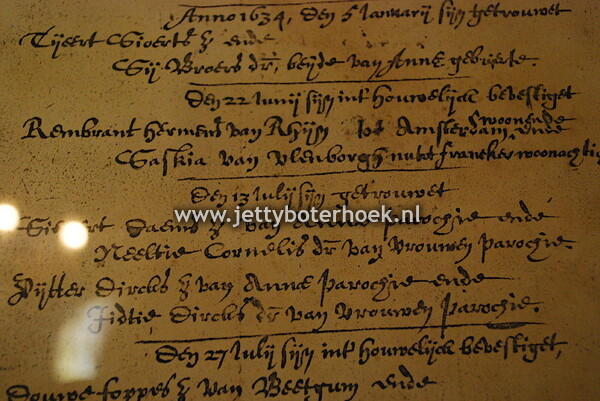 Anno 1634, den 5 Januarij sijn getrouwet
Tjeert Sioerts z ende
Sij Broers dr, beijde van Anne gebuerte.
Den 22 Junij sijn int houwelijck bevestiget
Rembrant Hermens van Rhijn tot Amsterdam woonende ende
Saskia van Vlenborgh nu tot franeker woonachtig
Den 13 Julij sijn getrouwet
Sioert z van parochie ende
Neeltie Cornelis dr van Vrouwen parochie.
www.jettyboterhoek.nl
Dircks z van Anne parochie ende
Dircks dr van Vrouwen parochie.
Den 27 Julij sijn int houwelijck bevestiget,
Douwe foppes z van Beetgum ende